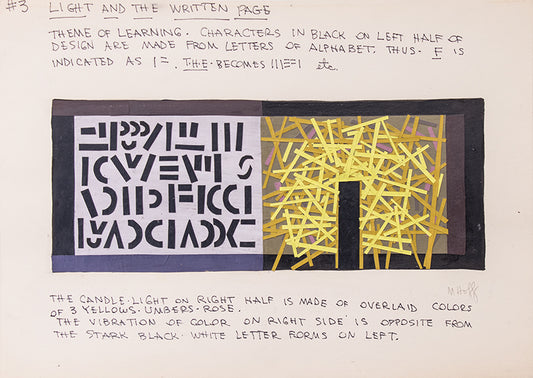 #3 LIGHT AND THE WRITTEN PAGE
THEME OF LEARNING. CHARACTERS IN BLACK ON LEFT HALF OF
DESIGN ARE MADE FROM LETTERS OF ALPHABET. THUS. F IS
INDICATED AS |=. T.H.E. BECOMES etc.
M Hoff
THE CANDLE.LIGHT ON RIGHT HALF IS MADE OF OVERLAID COLORS
OF 3 YELLOWS. UMBERS. ROSE.
THE VIBRATION OF COLOR ON RIGHT SIDE IS OPPOSITE FROM
THE STARK BLACK. WHITE LETTER FORMS ON LEFT.